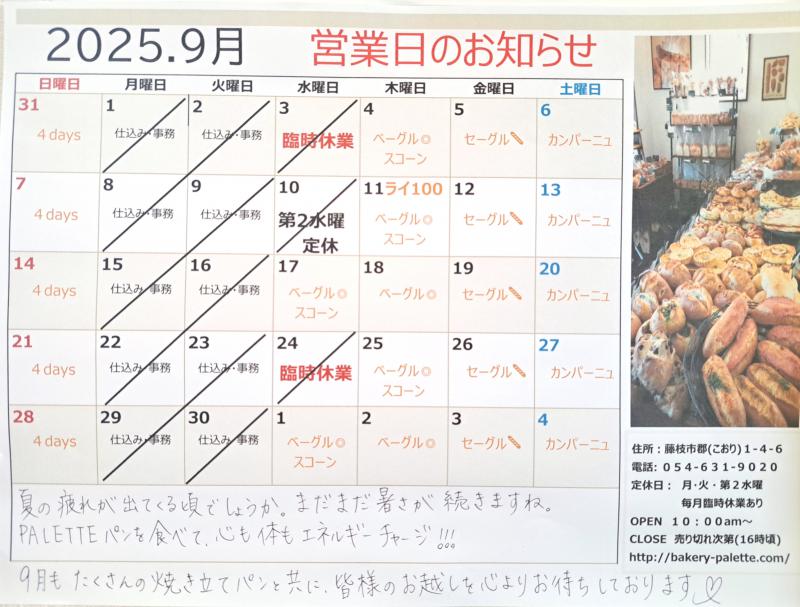 2025.9月 営業日のお知らせ
日曜日 月曜日 火曜日 水曜日 木曜日 金曜日 土曜日
31 1 2 3 4 5 6
4 days 仕込み・事務 仕込み・事務 臨時休業 ベーグル◎ セーグル🥖 カンパーニュ
スコーン
7 8 9 10 11ライ100 12 13
4 days 仕込み・事務 仕込み・事務 第2水曜 ベーグル◎ セーグル🥖 カンパーニュ
定休 スコーン
14 15 16 17 18 19 20
4 days 仕込み・事務 仕込み・事務 ベーグル◎ ベーグル◎ セーグル🥖 カンパーニュ
スコーン
21 22 23 24 25 26 27
4 days 仕込み・事務 仕込み・事務 臨時休業 ベーグル◎ セーグル🥖 カンパーニュ
スコーン
28 29 30 1 2 3 4
4 days 仕込み・事務 仕込み・事務 ベーグル◎ ベーグル◎ セーグル🥖 カンパーニュ
スコーン
夏の疲れが出てくる頃でしょうか。まだまだ暑さが続きますね。
PALETTEパンを食べて、心も体もエネルギーチャージ!!!
9月もたくさんの焼き立てパンと共に、皆様のお越しを心よりお待ちしております♡
住所:藤枝市郡(こおり)1-4-6
電話: 054-631-9020
定休日: 月・火・第2水曜
毎月臨時休業あり
OPEN 10:00am～
CLOSE 売り切れ次第(16時頃)
http://bakery-palette.com/